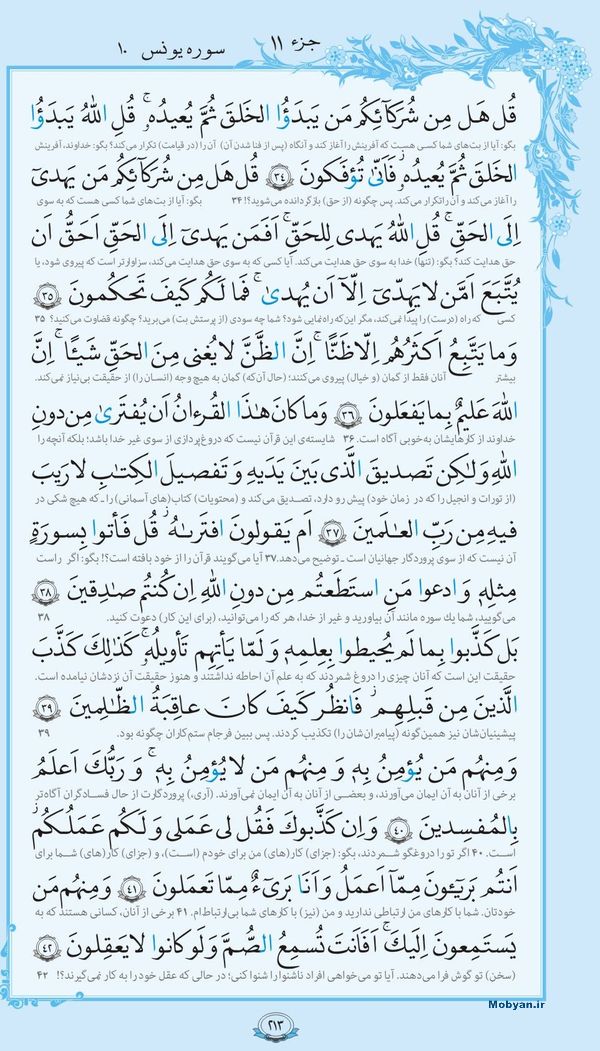 جزء ۱۱
سوره یونس ۱۰
قُل هَل مِن شُرَكَآئِكُم مَن يَبدَؤُا الخَلقَ ثُمَّ يُعيدُهُ ۚ قُلِ اللهُ يَبدَؤُا
بگو: آیا از بت‌های شما کسی هست که آفرینش را آغاز کند و آنگاه (پس از فنا شدن آن) آن را (در قیامت) تکرار می‌کند؟ بگو: خداوند، آفرینش
الخَلقَ ثُمَّ يُعيدُهُ ۖ فَاَنّىٰ تُؤفَكونَ ۳۴ قُل هَل مِن شُرَكَآئِكُم مَن يَهدىٓ
را آغاز می‌کند و آن را تکرار می‌کند. پس چگونه (از حق) بازگردانده می‌شوید؟! ۳۴ بگو: آیا از بت‌های شما کسی هست که به سوی
اِلَى الحَقِّ ۚ قُلِ اللهُ يَهدى لِلحَقِّ ۗ اَفَمَن يَهدىٓ اِلَى الحَقِّ اَحَقُّ اَن
حق هدایت کند؟ بگو: (تنها) خدا به سوی حق هدایت می‌کند. آیا کسی که به سوی حق هدایت می‌کند، سزاوارتر است که پیروی شود، یا
يُتَّبَعَ اَمَّن لا يَهِدّىٓ اِلّآ اَن يُهدىٰ ۖ فَما لَكُم كَيفَ تَحكُمونَ ۳۵
کسی که راه (درست) را پیدا نمی‌کند، مگر این‌که راه‌نمایی شود؟ شما چه سودی (از پرستش بت) می‌برید؟ چگونه قضاوت می‌کنید؟ ۳۵
وَما يَتَّبِعُ اَكثَرُهُم اِلّا ظَنًّا ۚ اِنَّ الظَّنَّ لا يُغنى مِنَ الحَقِّ شَيئًا ۚ اِنَّ
بیشتر آنان فقط از گمان (و خیال) پیروی می‌کنند؛ (حال آن‌که) گمان به هیچ وجه (انسان را) از حقیقت بی‌نیاز نمی‌کند.
اللهَ عَليمٌ بِما يَفعَلونَ ۳۶ وَما كانَ هٰذَا القُرءانُ اَن يُفتَرىٰ مِن دونِ
خداوند از کارهایشان به‌خوبی آگاه است. ۳۶ شایسته‌ی این قرآن نیست که دروغ‌پردازی از سوی غیر خدا باشد؛ بلکه آنچه را
اللهِ وَلٰكِن تَصديقَ الَّذى بَينَ يَدَيهِ وَ تَفصيلَ الكِتٰبِ لا رَيبَ
(از تورات و انجیل را که در زمان خود) پیش رو دارد، تصدیق می‌کند و (محتویات) کتاب(های آسمانی) را ـ که هیچ شکی در
فيهِ مِن رَبِّ العالَمينَ ۳۷ اَم يَقولونَ افتَرىٰهُ ۖ قُل فَأتوا بِسورَةٍ
آن نیست که از سوی پروردگار جهانیان است ـ توضیح می‌دهد. ۳۷ آیا می‌گویند قرآن را از خود بافته است؟! بگو: اگر راست
مِثلِهٖ وَ ادعوا مَنِ استَطَعتُم مِن دونِ اللهِ اِن كُنتُم صادِقينَ ۳۸
می‌گویید، شما یك سوره مانند آن بیاورید و غیر از خدا، هر که را می‌توانید، (برای این کار) دعوت کنید. ۳۸
بَل كَذَّبوا بِما لَم يُحيطوا بِعِلمِهٖ وَ لَمّا يَأتِهِم تَأويلُهُ ۚ كَذٰلِكَ كَذَّبَ
حقیقت این است که آنان چیزی را دروغ شمردند که به علم آن احاطه نداشتند و هنوز حقیقت آن نزدشان نیامده است.
الَّذينَ مِن قَبلِهِم ۖ فَانظُر كَيفَ كانَ عاقِبَةُ الظّالِمينَ ۳۹
پیشینیان‌شان نیز همین‌گونه (پیامبران‌شان را) تکذیب کردند. پس ببین فرجام ستم‌کاران چگونه بود. ۳۹
وَ مِنهُم مَن يُؤمِنُ بِهٖ وَ مِنهُم مَن لا يُؤمِنُ بِهٖ ۚ وَ رَبُّكَ اَعلَمُ
برخی از آنان به آن ایمان می‌آورند، و بعضی از آنان به آن ایمان نمی‌آورند. (آری،) پروردگارت از حال فسادگران آگاه‌تر
بِالمُفسِدينَ ۴۰ وَ اِن كَذَّبوكَ فَقُل لى عَمَلى وَ لَكُم عَمَلُكُم ۖ
است. ۴۰ اگر تو را دروغگو شمردند، بگو: (جزای) کار(های) من برای خودم (است)، و (جزای) کار(های) شما برای
اَنتُم بَريٓئونَ مِمّآ اَعمَلُ وَ اَنَا بَرىٓءٌ مِمّا تَعمَلونَ ۴۱ وَ مِنهُم مَن
خودتان. شما با کارهای من ارتباطی ندارید و من (نیز) با کارهای شما بی‌ارتباطم. ۴۱ برخی از آنان، کسانی هستند که به
يَستَمِعونَ اِلَيكَ ۚ اَفَاَنتَ تُسمِعُ الصُّمَّ وَ لَو كانوا لا يَعقِلونَ ۴۲
(سخنِ) تو گوش فرا می‌دهند. آیا تو می‌خواهی افراد ناشنوا را شنوا کنی؛ در حالی که عقل خود را به کار نمی‌گیرند؟! ۴۲
Mobyan.ir
۲۱۳